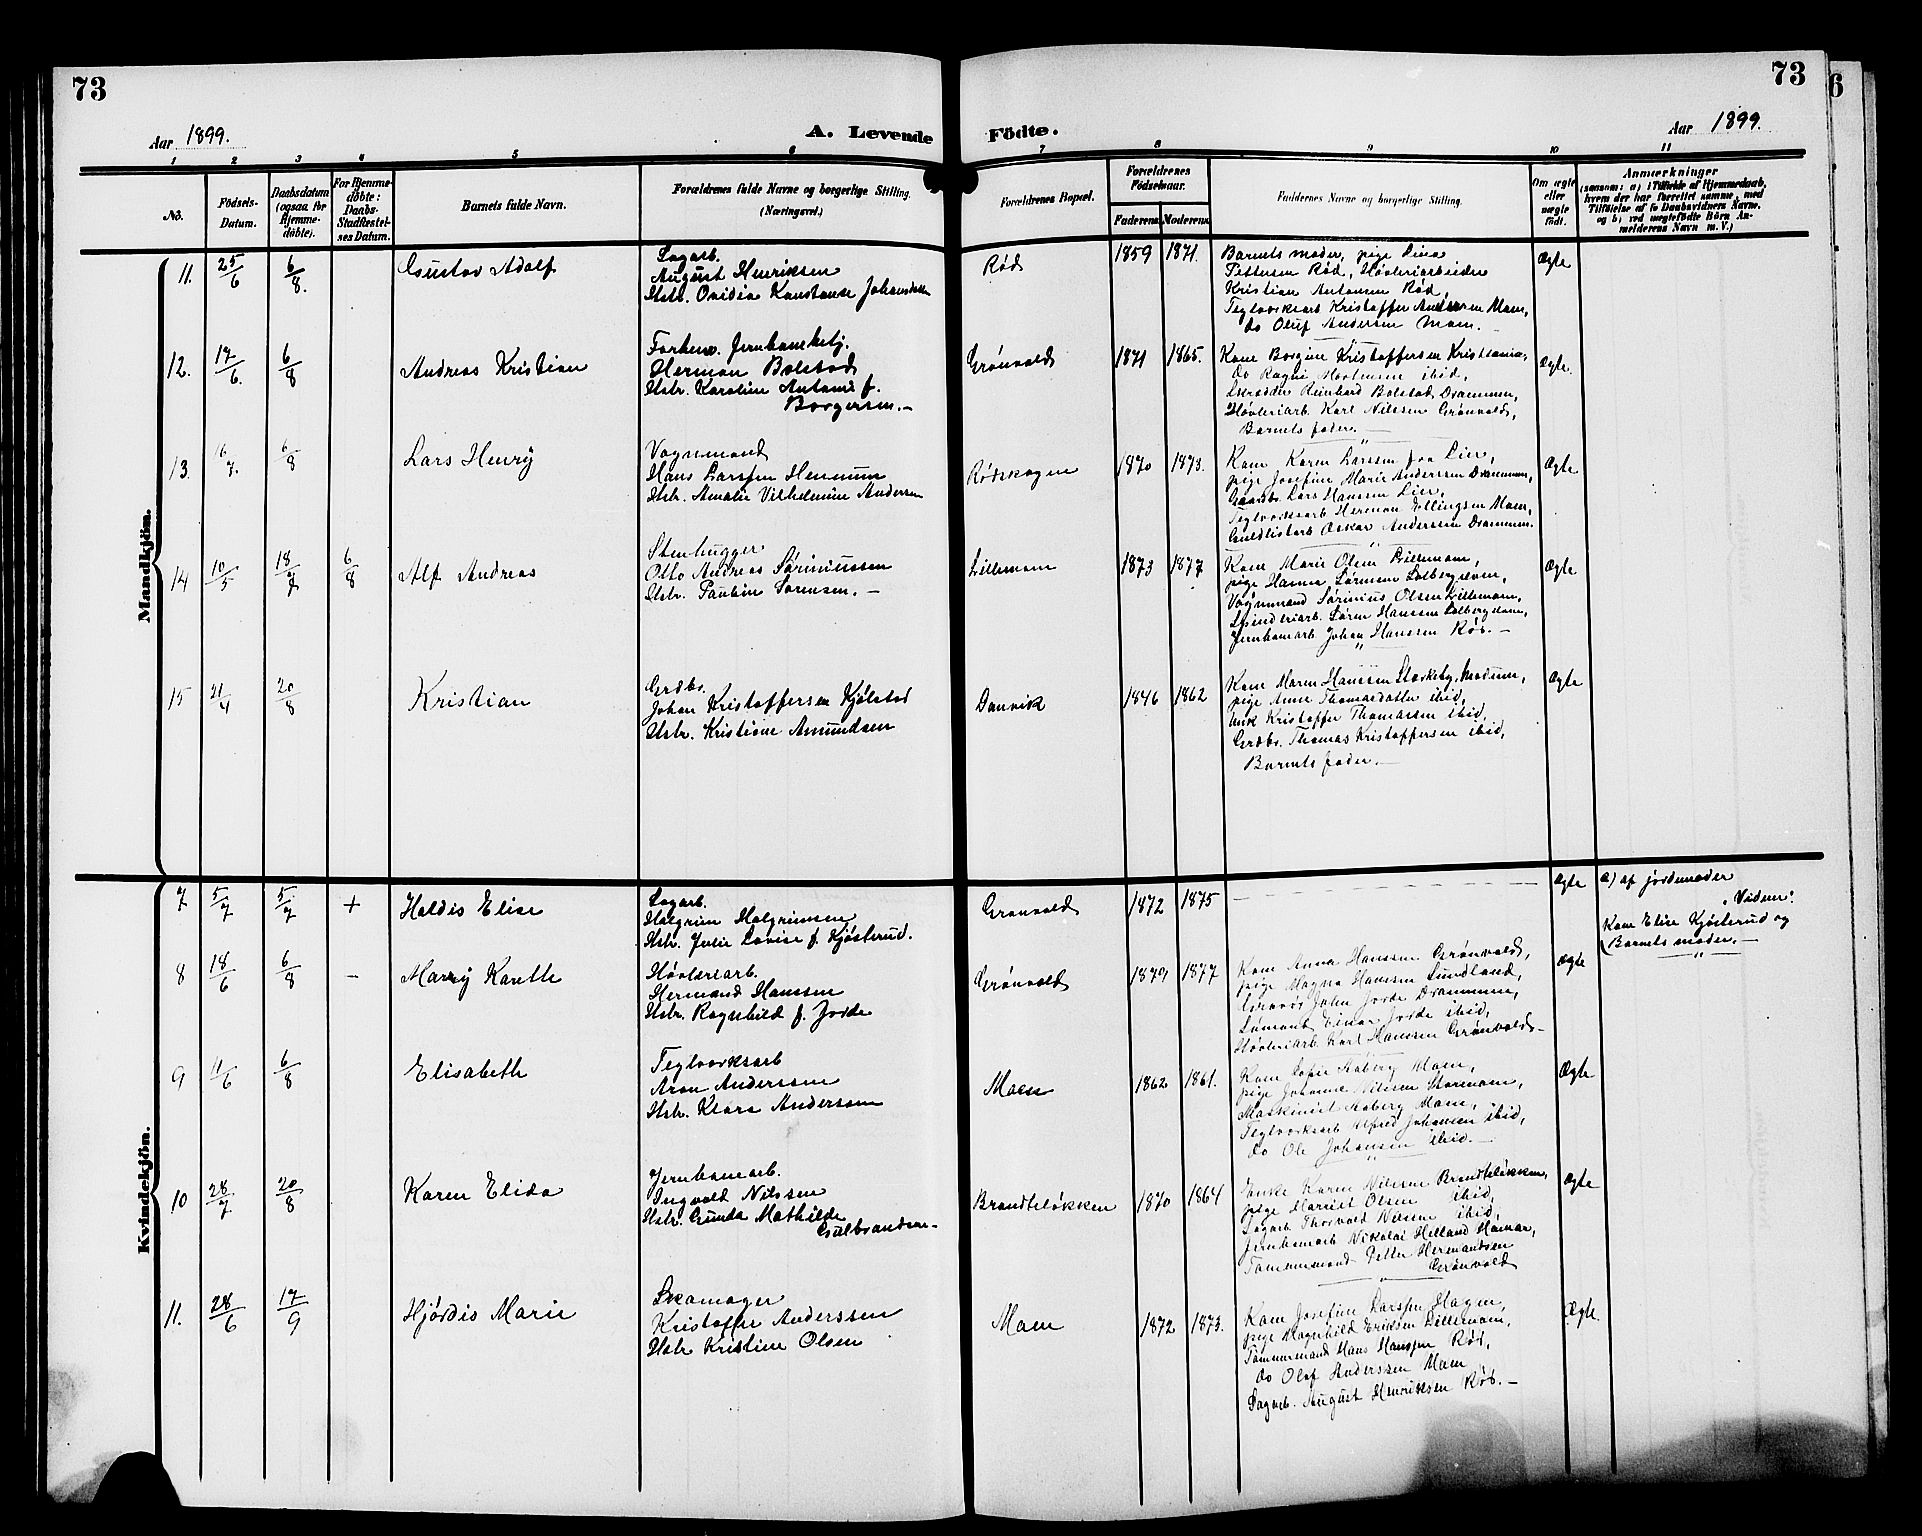 73
73
Aar 1899.
A. Levende
Födte.
Aar 1899.
1 2 3 4 5 6 7 8 9 10 11
No.
Födsels-
Datum.
Daabsdatum
(ogsaa for
Hjemme-
döbte).
For Hjemme-
döbte:
Daabs-
Stadfæstel-
ses Datum.
Barnets fulde Navn.
Forældrenes fulde Navne og borgerlige Stilling.
(Næringsvei.)
Forældrenes Bopæl.
Forældrenes
Födselsaar.
Faderens. Moderens.
Faddernes Navne og borgerlige Stilling.
Om ægte
eller
uægte
födt.
Anmærkninger
(saasom: a) i Tilfælde af Hjemmedaab,
hvem der har forrettet samme, med
Tilföielse af to Daabsvidners Navne,
og b) ved uægtefödte Börn An-
melderens Navn m. V.)
Mandkjön.
11. 25/6 6/8. Gustav Adolf
Sagarb.
August Henriksen
Hstr. Ovidia Konstanse Johansdatter
Rød 1859 1871.
Barnets moder, pige Lina
Pettersen Rød, Høvleriarbeider
Kristian Antonsen Rød,
Teglværksarb Kristoffer Andersen Moen,
do Oluf Andersen Moen.
Ægte
12. 17/6. 6/8 Andreas Kristian
Forhenv. Jernbanebetj.
Herman Bolstad
Hstr. Karoline Antona f.
Borgersen.
Grønvold 1871 1865.
Kone Borgine Kristoffersen Kristiania,
do Ragni ibid,
Skrædder Reinhard Bolstad, Drammen,
Høvleriarb. Karl Nilssen Grønvold,
Barnets fader.
Ægte.
13. 16/7. 6/8 Lars Henry
Vognmand
Hans Larssen Hennum
Hstr. Amalie Vilhelmine Andersen
Rødskogen 1870 1873.
Kone Karen Larssen fra Lier,
pige Josefine Marie Anderssen Drammen,
Gaardbr. Lars Hanssen Lier,
Teglværksarb Herman Ellingsen Moen,
Guldlistarb Oskar Anderssen Drammen.
Ægte
14 10/5 18/7 6/8 Alf Andreas
Stenhugger
Otto Andreas Søriniussen
Hstr. Pauline Sørensen.
Lillemoen 1873 1877
Kone Marie Olsen Lillemoen,
pige Hanna Sørensen Solbergelven,
Vognmand Sørinius Olsen Lillemoen,
Spinderiarb. Søren Hanssen Solbergelven,
Jernbanearb Johan Hanssen Rød.
Ægte
15 21/4 20/8 Kristian
Grdbr.
Johan Kristoffersen Kjølstad
Hstr. Kristiane Amundsen
Danvik 1846 1862
Kone Maren Hanssen Modum,
pige Anne Thomasdatter ibid,
Unk Kristoffer Thomassen ibid,
Grdbr. Thomas Kristoffersen ibid,
Barnets fader.
Ægte
Kvindekjön.
7 5/7 5/7 + Haldis Elise
Sagarb.
Halgrim Halgrimsen
Hstr. Julie Lovise f. Kjøsterud.
Grønvold 1872 1875
Ægte
a) af jordemoder
Vidner:
Kone Elise Kjøsterud og
Barnets moder.
8 18/6 6/8 – Marry Kareth
Høvleriarb.
Hermand Hanssen
Hstr. Ragnhild f. Jorde
Grønvold 1879 1877
Kone Anna Hanssen Grønvold,
pige Magna Hanssen Sundland,
Gravør John Jorde Drammen,
Sømand Einar Jorde ibid,
Høvleriarb. Karl Hanssen Grønvold
Ægte
9 11/6 6/8 Elisabeth
Teglværksarb
Aron Anderssen
Hstr. Klara Anderssen
Moen 1862 1861.
Kone Sofie Aaberg Moen,
pige Johanne Nilssen Stormoen,
Maskinist Aaberg Moen,
Teglværksarb Alfred Johansen ibid,
do Ole Johansen ibid.
Ægte
10 28/7 20/8 Karen Elida
Jernbanearb.
Ingvald Nilssen
Hstr. Gunda Mathilde
Gulbrandsen
Brandteløkken 1870 1864
Enke Karen Nilssen Brandteløkken,
pige Harriet Olsen ibid,
Sagarb Thorvald Nilssen ibid,
Jernbanearb Nikolai Helland Hamar,
Tømmermand Petter Hermandsen
Grønvold
Ægte
11. 28/6 17/9 Hjørdis Marie
Skomager
Kristoffer Anderssen
Hstr Kristine Olsen
Moen 1872 1873.
Kone Josefine Larssen Hagen,
pige Magnhild Eriksen Lillemoen,
Tømmermand Hans Hanssen Rød,
do Olaf Anderssen Moen
Sagarb. August Henriksen Rød.
Ægte